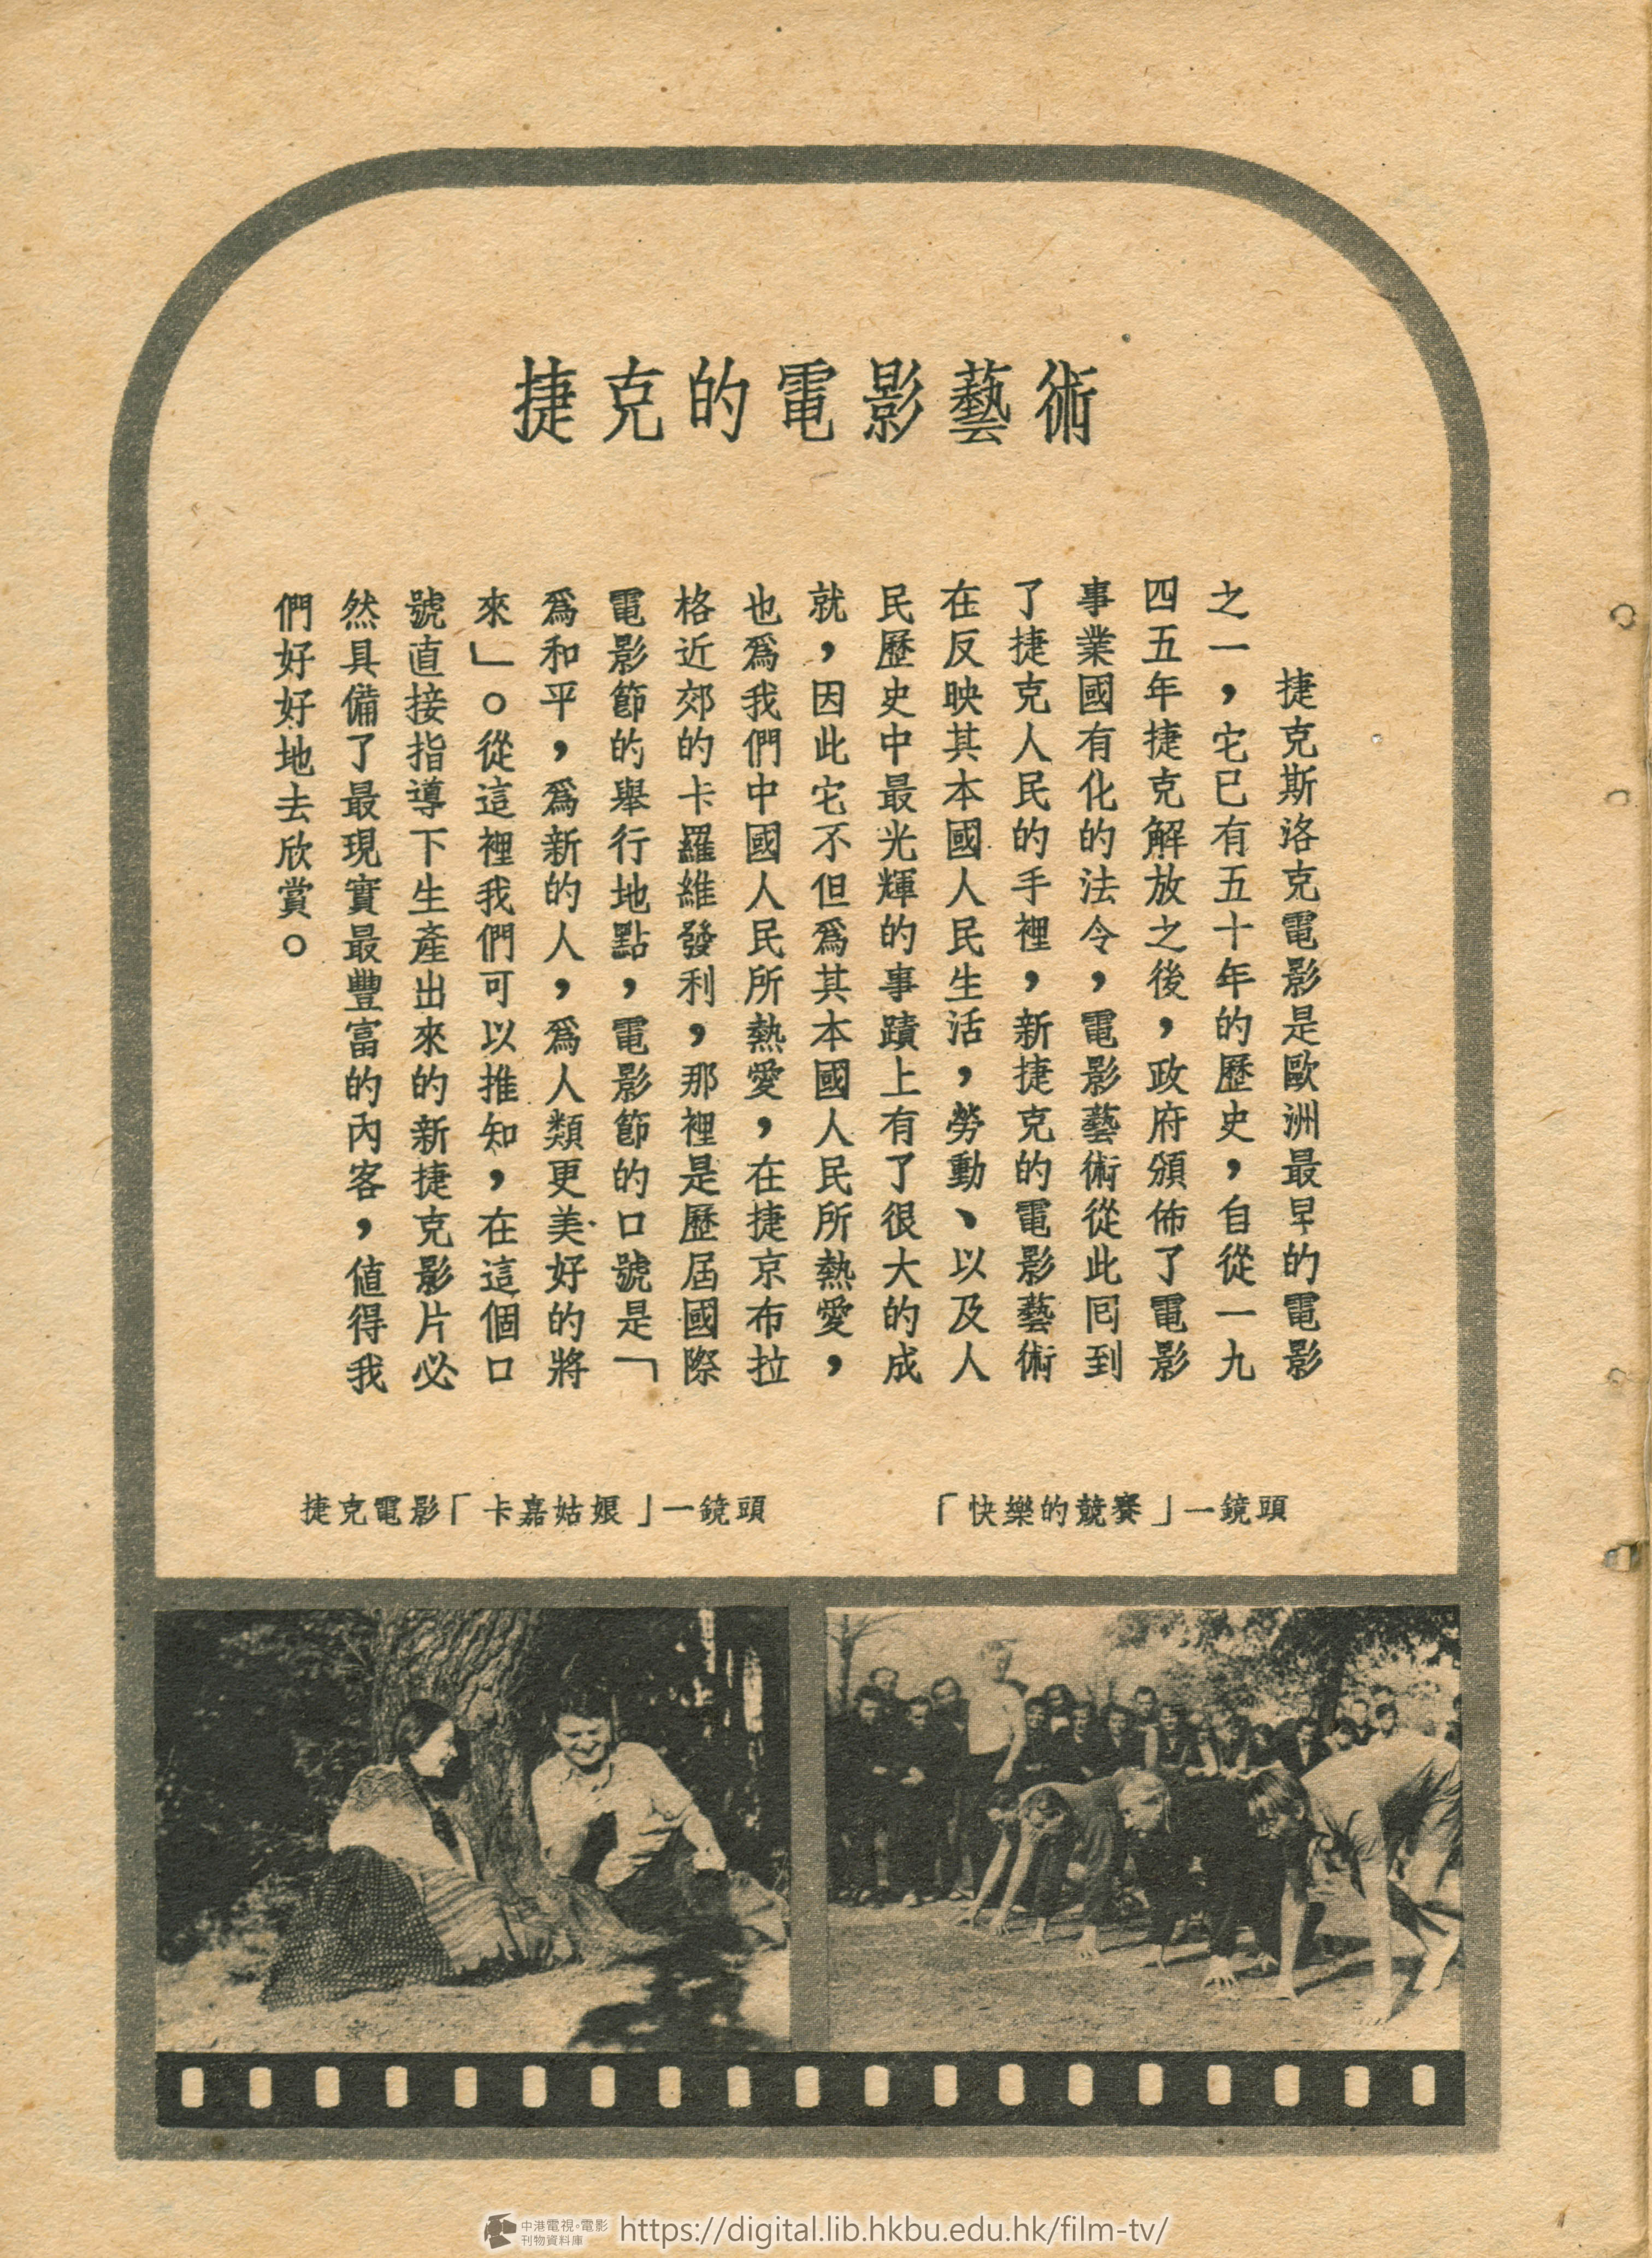 捷克的電影藝術
捷克斯洛克電影是歐洲最早的電影
之一，它已有五十年的歷史，自從一九
四五年捷克解放之後，政府頒佈了電影
事業國有化的法令，電影藝術從此囘到
了捷克人民的手裡，新捷克的電影藝術
在反映其本國人民生活，勞動、以及人
民歷史中最光輝的事蹟上有了很大的成
就，因此它不但爲其本國人民所熱愛，
也爲我們中國人民所熱愛，在捷京布拉
格近郊的卡羅維發利，那裡是歷屆國際
電影節的舉行地點，電影節的口號是「
爲和平，爲新的人，爲人類更美好的將
來」。從這裡我們可以推知，在這個口
號直接指導下生產出來的新捷克影片必
然具備了最現實最豐富的內客，値得我
們好好地去欣賞。
捷克電影「卡嘉姑娘」一鏡頭
「快樂的競賽」一鏡頭
中港電視·電影
刊物資料庫
https://digital.lib.hkbu.edu.hk/film-tv/